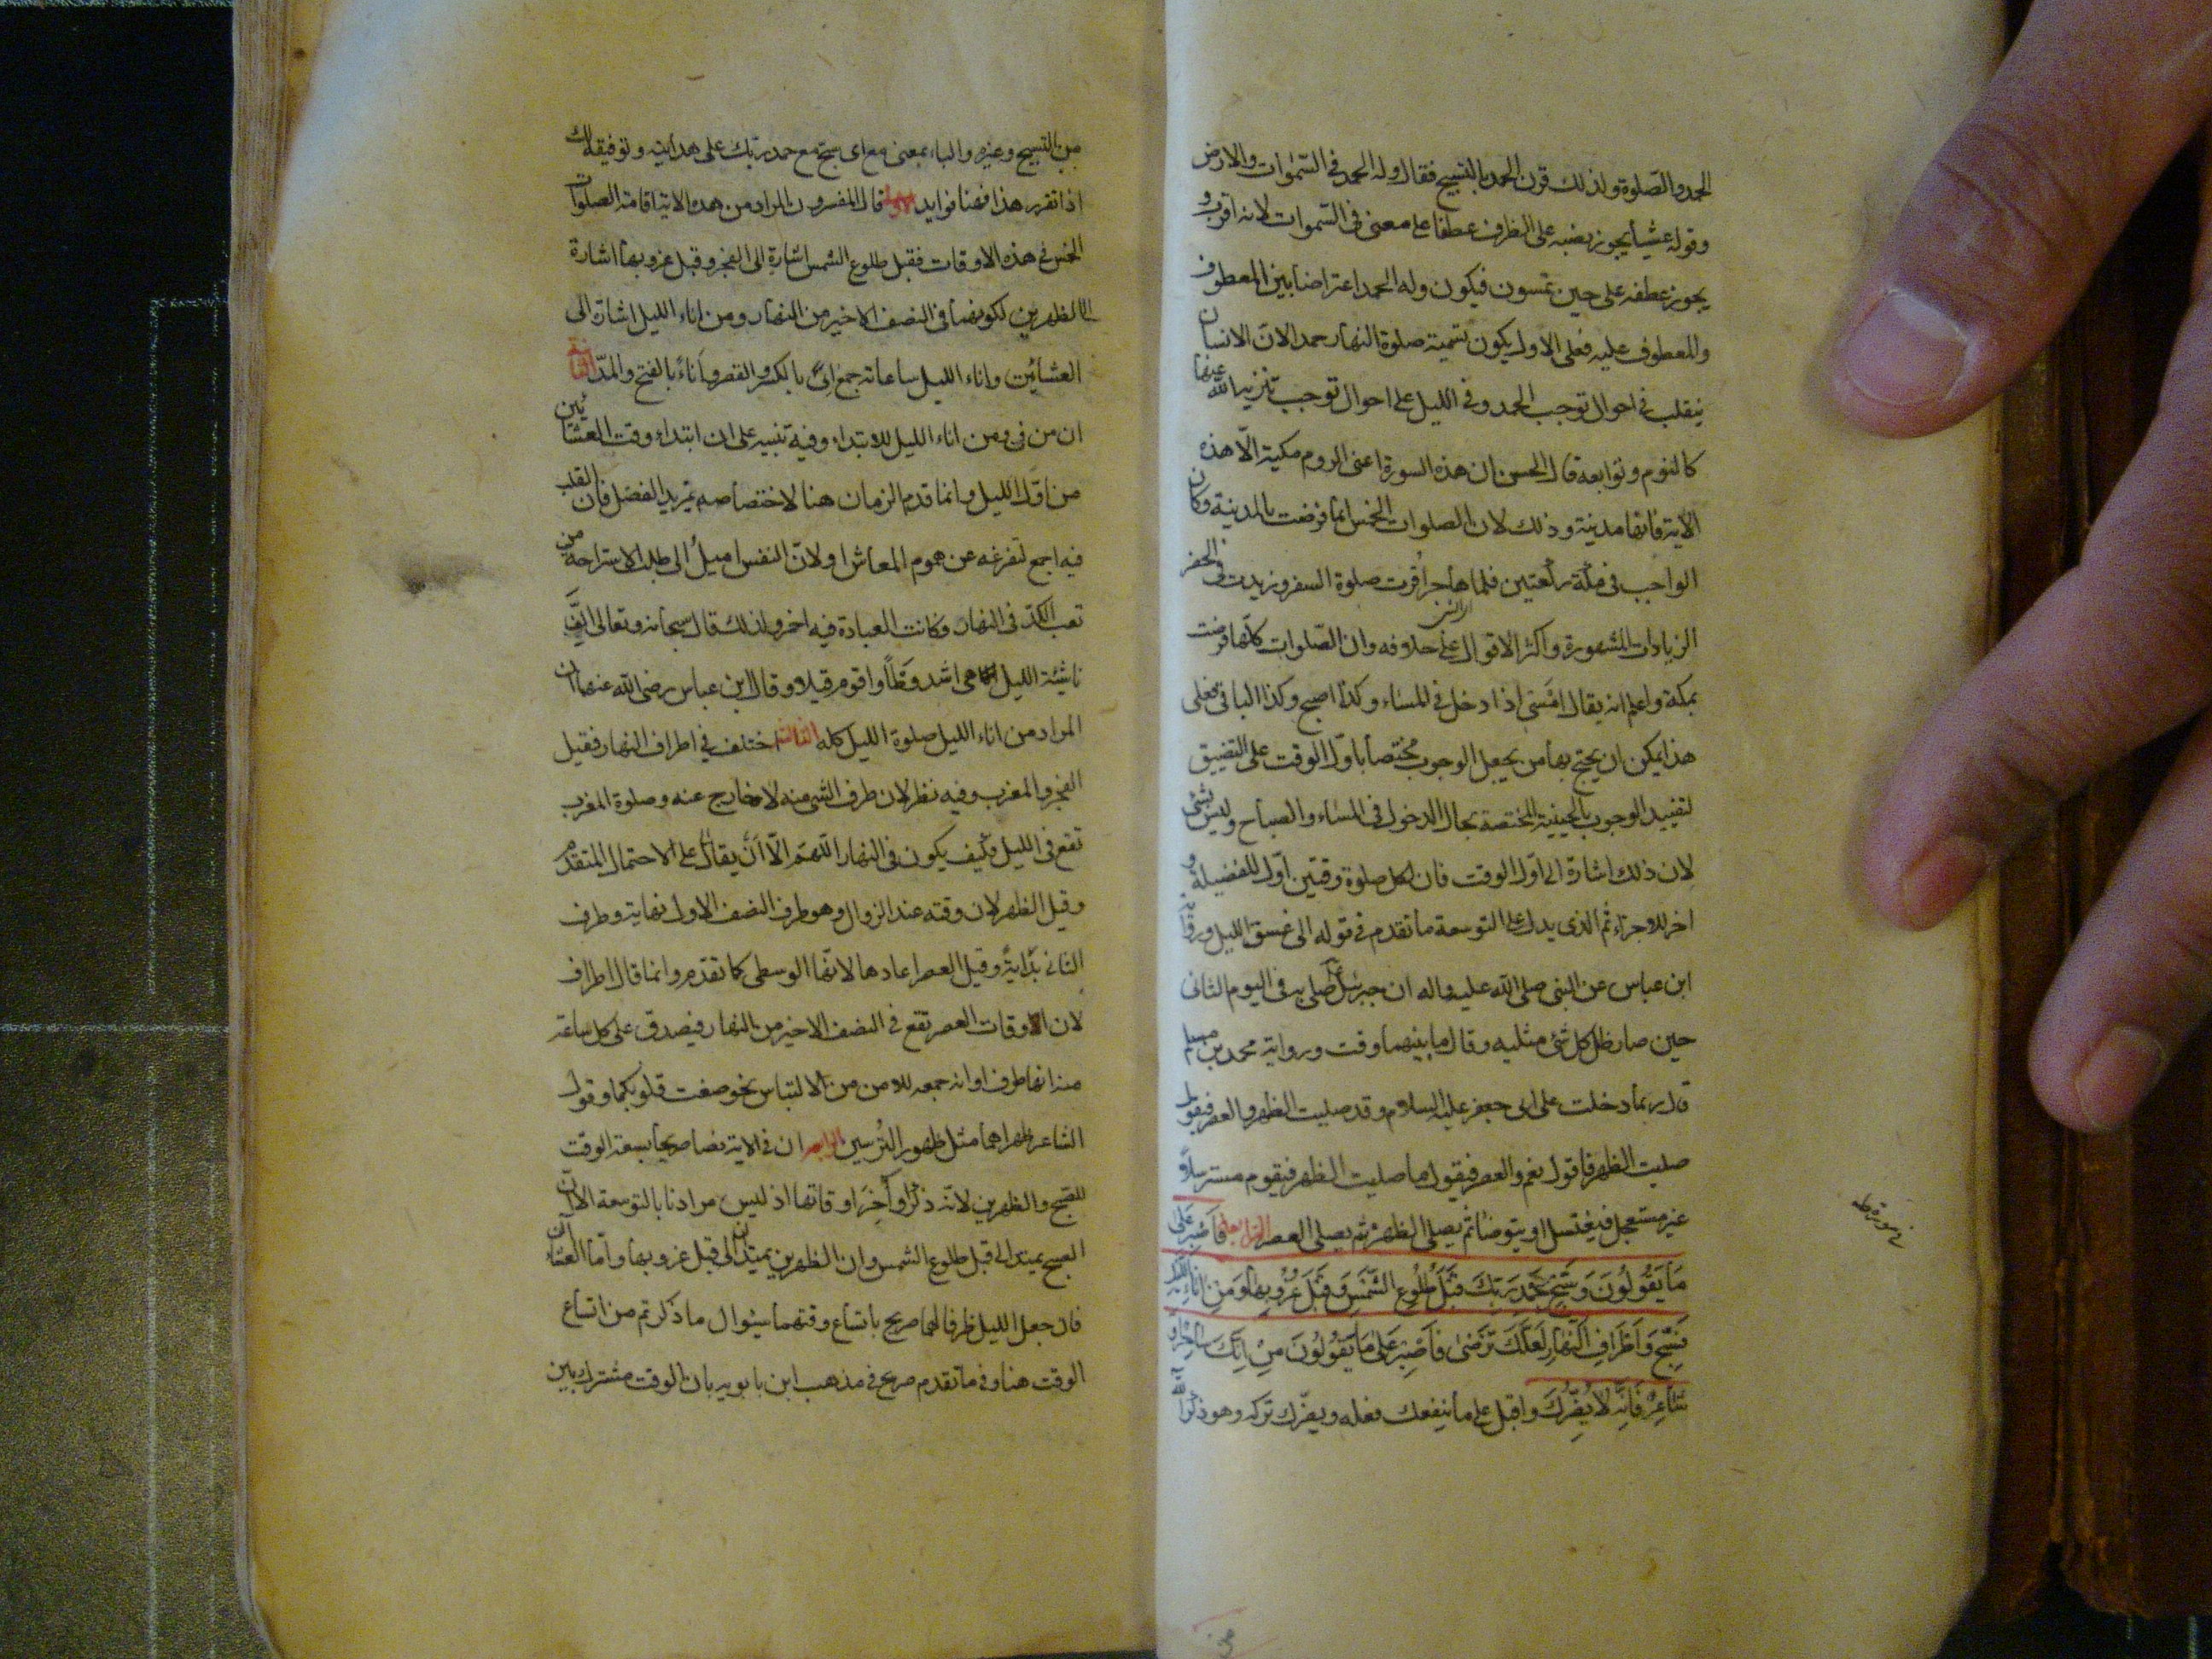 الحمد والصلوة ولذلك قرن الحمد بالتسبيح فقال وله الحمد في السموات والارض
وقوله عشيا يجوز نصبه على الظرف عطفا على معنى في السموات لانه اقرب و
يجوز عطفه على حين تمسون فيكون وله الحمد اعتراضا بين المعطوف
والمعطوف عليه فعلى الاول يكون تسمية صلوة النهار حمدا لان الانسان
يتقلب في احوال توجب الحمد وفي الليل على احوال توجب تنزيه الله عنها
كالنوم وتوابعه قال الحسن ان هذه السورة اعنى الروم مكية الا هذه
الاية فانها مدنية وذلك لان الصلوات الخمس انما فرضت بالمدينة وكان
الواجب في مكة ركعتين فلما هاجر اقرت صلوة السفر وزيدت في الحضر
الزيادات المشهورة واكثر الاقوال على خلافه وان الصلوات كلها فرضت
بمكة واعلم انه يقال امسى اذا دخل في المساء وكذا اصبح وكذا الباقى فعلى
هذا يمكن ان يحتج بها من يجعل الوجوب مختصا باول الوقت على التضييق
لتقييد الوجوب بالحينية المختصة بحال الدخول في المساء والصباح وليس بشئ
لان ذلك اشارة الى اول الوقت فان لكل صلوة وقتين اول للفضيلة و
اخر للاجزاء ثم الذى يدل على التوسعة ما تقدم في قوله الى غسق الليل ورواية
ابن عباس عن النبى صلى الله عليه واله ان جبرئيل صلى به في اليوم الثانى
حين صار ظل كل شئ مثليه وقال ما بينهما وقت ورواية محمد بن مسلم
قال ربما دخلت على ابى جعفر عليه السلام وقد صليت الظهر والعصر فيقول
صليت الظهر فاقول نعم والعصر فيقول ما صليت الظهر فيقوم مسترسلا
غير مستعجل فيغتسل او يتوضا ثم يصلى الظهر ثم يصلى العصر الرابعة فاصبر على
ما يقولون وسبح بحمد ربك قبل طلوع الشمس وقبل غروبها ومن اناء الليل
فسبح واطراف النهار لعلك ترضى فاصبر على ما يقولون من انك ساحر او
شاعر فانه لا يضرك واقبل على ما ينفعك فعله ويضرك تركه وهو ذكر الله
في سورة طه
من
من التسبيح وغيره والباء بمعنى مع اى سبح مع حمد ربك على هدايته وتوفيقه لك
اذا تقرر هذا فهنا فوايد الاولى قال المفسرون المراد من هذه الاية اقامة الصلوات
الخمس في هذه الاوقات فقبل طلوع الشمس اشارة الى الفجر وقبل غروبها اشارة
الى الظهرين لكونهما في النصف الاخير من النهار ومن اناء الليل اشارة الى
العشائين واناء الليل ساعاته جمع انى بالكسر والقصر واناء بالفتح والمد الثانية
ان من في ومن اناء الليل للابتداء وفيه تنبيه على ان ابتداء وقت العشائين
من اول الليل وانما قدم الزمان هنا لاختصاصه بمزيد الفضل فان القلب
فيه اجمع لتفرغه عن هموم المعاش ولان النفس اميل الى طلب الاستراحة من
تعب الكد في النهار فكانت العبادة فيه احمز ولذلك قال سبحانه وتعالى ان
ناشئة الليل هى اشد وطأ واقوم قيلا وقال ابن عباس رضى الله عنهما ان
المراد من اناء الليل صلوة الليل كله الثالثة اختلف في اطراف النهار فقيل
الفجر والمغرب وفيه نظر لان طرف الشئ منه لا خارج عنه وصلوة المغرب
تقع في الليل فكيف يكون في النهار اللهم الا ان يقال على الاحتمال المتقدم
وقيل الظهر لان وقته عند الزوال وهو طرف النصف الاول نهاية وطرف
الثانى بداية وقيل العصر اعادها لانها الوسطى كما تقدم وانما قال اطراف
لان اوقات العصر تقع في النصف الاخير من النهار فيصدق على كل ساعة
منه انها طرف او انه جمعه للامن من الالتباس نحو صغت قلوبكما وقول
الشاعر ظهراهما مثل ظهور الترسين الرابعة ان في الاية نصا صريحا بسعة الوقت
للصبح والظهرين لانه ذكر اواخر اوقاتها اذ ليس مرادنا بالتوسعة الا ان
الصبح يمتد الى قبل طلوع الشمس وان الظهرين يمتدان الى قبل غروبها واما العشاءان
فان جعل الليل ظرفا لهما صريح باتساع وقتهما سؤال ما ذكرتم من اتساع
الوقت هنا وفي ما تقدم صريح في مذهب ابن بابويه بان الوقت مشترك بين